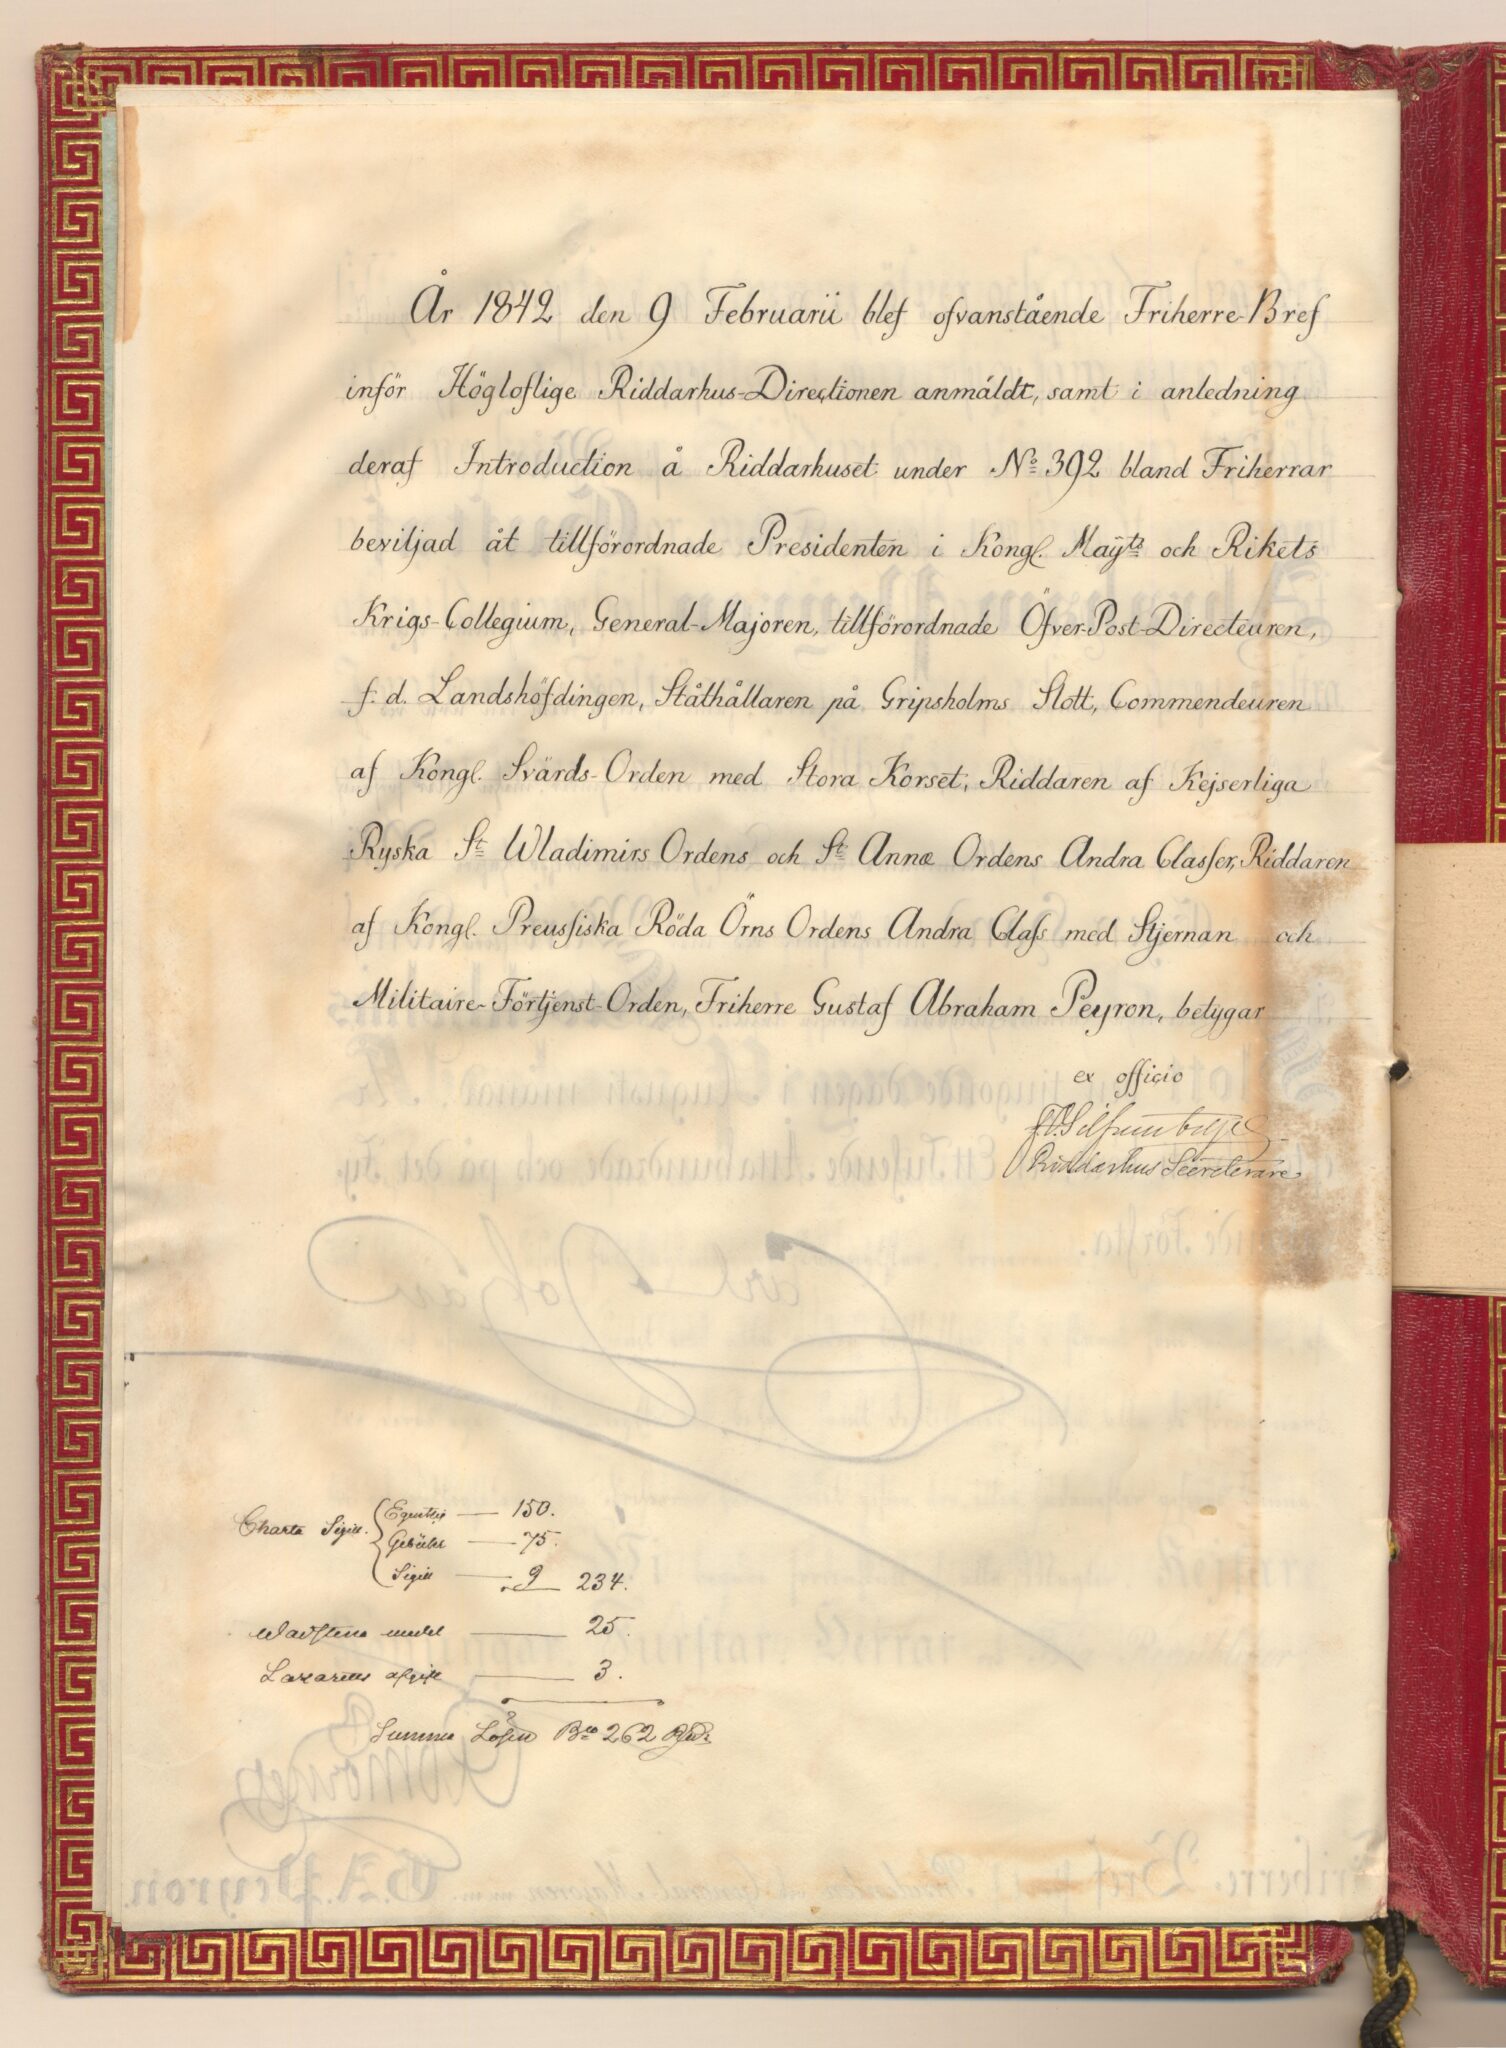 År 1842 den 9 Februarii blef ofvanstående Friherre-Bref
inför Högloflige Riddarhus-Directionen anmäldt, samt i anledning
deraf Introduction å Riddarhuset under No 392 bland Friherrar
beviljad åt tillförordnade Presidenten i Kongl. Maÿts och Rikets
Krigs-Collegium, General-Majoren, tillförordnade Öfver-Post-Directeuren,
f. d. Landshöfdingen, Ståthållaren på Gripsholms Slott, Commendeuren
af Kongl. Svärds-Orden med Stora Korset, Riddaren af Kejserliga
Ryska St Wladimirs Ordens och St Annæ Ordens Andra Classer, Riddaren
af Kongl. Preussiska Röda Örns Ordens Andra Class med Stjernan och
Militaire-Förtjenst-Orden, Friherre Gustaf Abraham Peyron, betygar
ex officio
Riddarhus Secreterare
Charta Sigill.
150.
75.
Sigill 9 234.
Wadstena 25.
Lazarets afgift 3.
Summa Lösen Bco 262 Rdr